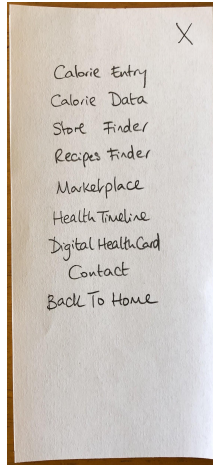 X
Calorie Entry
Calorie Data
Store Finder
Recipes Finder
Marketplace
Health Timeline
Digital HealthCard
Contact
Back To Home